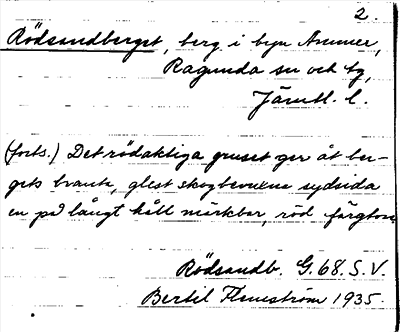 2.
Rödsandberget, berg i byn Ammer,
Ragunda sn och tg,
Jämtl. l.
(forts.) Det rödaktiga gruset ger åt ber-
gets branta, glest skogbevuxna sydsida
en på långt håll märkbar, röd färgton.
Rödsandb. G.68.S.V.
Bertil Flemström 1935.